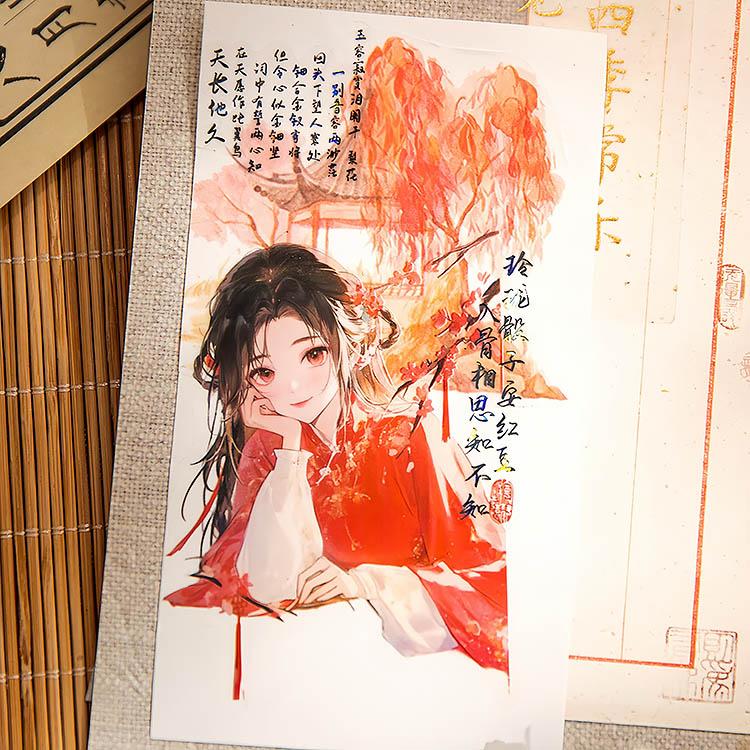 四季常乐
玉容寂寞泪阑干 梨花
一别音容两渺茫
回头下望人寰处
钿合金钗寄将
但令心似金钿坚
词中有誓两心知
在天愿作比翼鸟
天长地久
玲珑骰子安红豆
入骨相思知不知